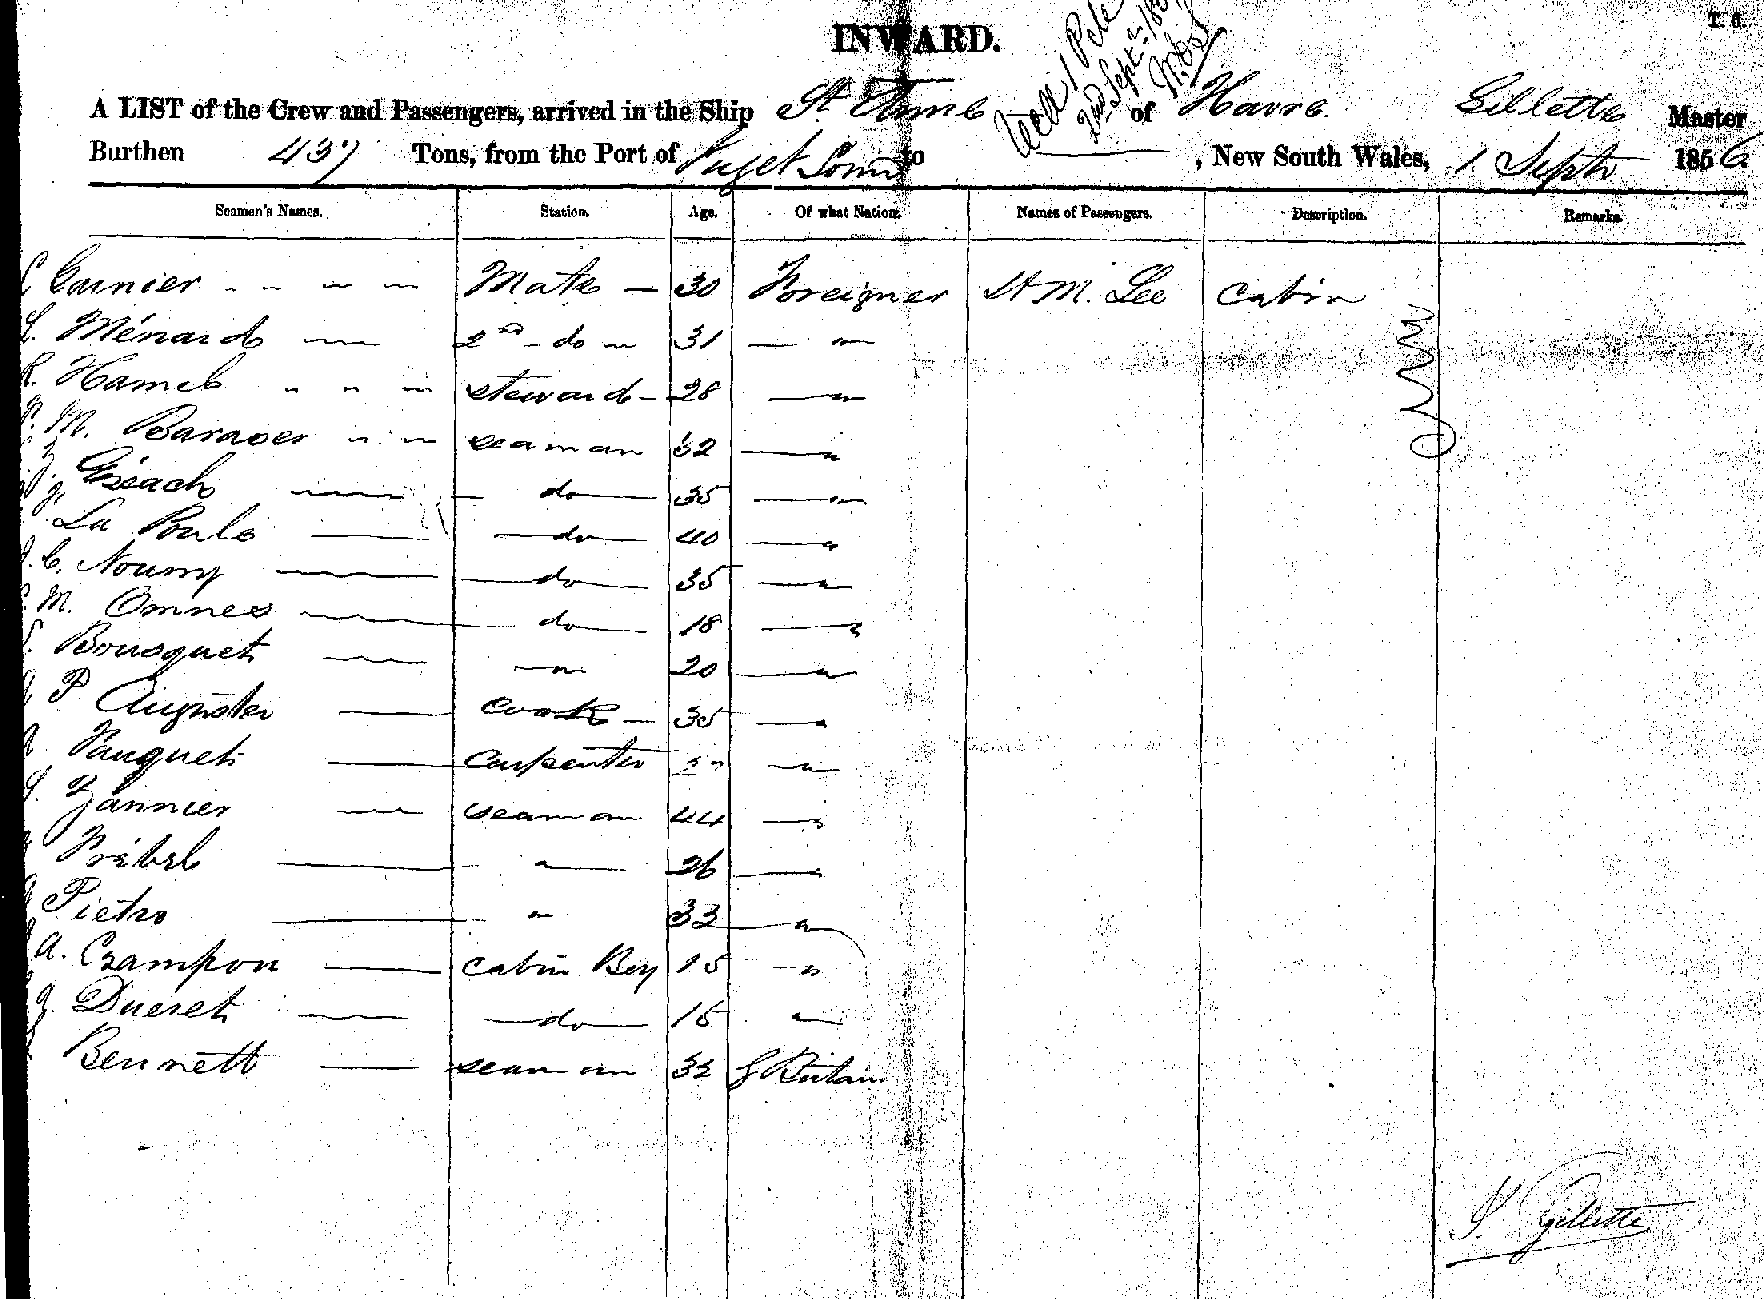 INWARD.
T. 6.
2nd Sept.
A LIST of the Crew and Passengers, arrived in the Ship St Anne of Havre Gillette Master
Burthen 437 Tons, from the Port of Puget Sound to , New South Wales, 1 Septr 1856
Seamen's Names. Station. Age. Of what Nation. Names of Passengers. Description. Remarks.
Garnier Mate 30 Foreigner St M. Lee Cabin
Ménard 2nd do 31
Hamel Steward 28
M. Baraoer seaman 32
Géach do 35
La Poule do 40
C. Noury do 35
M. Omnes do 18
Bousquet " 20
P Auguster Cook 35
Pauquet Carpenter
Jannier seaman 44
Prébel " 26
Pietro " 33
A. Crampon Cabin Boy 15
J. Dueret do 15
Bennett seaman 32 G Britain
Gillette